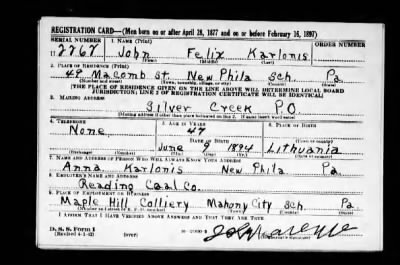 REGISTRATION CARD—(Men born on or after April 28, 1877 and on or before February 16, 1897)
SERIAL NUMBER 1. NAME (Print) ORDER NUMBER
John Felix Karlonis
(First) (Middle) (Last)
2. PLACE OF RESIDENCE (Print)
49 Macomb St. New Phila Sch. Pa
(Number and street) (Town, township, village, or city) (County) (State)
[THE PLACE OF RESIDENCE GIVEN ON THE LINE ABOVE WILL DETERMINE LOCAL BOARD
JURISDICTION; LINE 2 OF REGISTRATION CERTIFICATE WILL BE IDENTICAL]
3. MAILING ADDRESS
Silver Creek P.O.
[Mailing address if other than place indicated on line 2. If same insert word same]
4. TELEPHONE 5. AGE IN YEARS 6. PLACE OF BIRTH
None 47
DATE OF BIRTH (Town or county)
June 9 1894 Lithuania
(Exchange) (Number) (Mo.) (Day) (Yr.) (State or country)
7. NAME AND ADDRESS OF PERSON WHO WILL ALWAYS KNOW YOUR ADDRESS
Anna Karlonis New Phila Pa
8. EMPLOYER'S NAME AND ADDRESS
Reading Coal Co.
9. PLACE OF EMPLOYMENT OR BUSINESS
Maple Hill Colliery Mahony City Sch. Pa
(Number and street or R. F. D. number) (Town) (County) (State)
I AFFIRM THAT I HAVE VERIFIED ABOVE ANSWERS AND THAT THEY ARE TRUE.
D. S. S. Form 1
(Revised 4-1-42) (over)